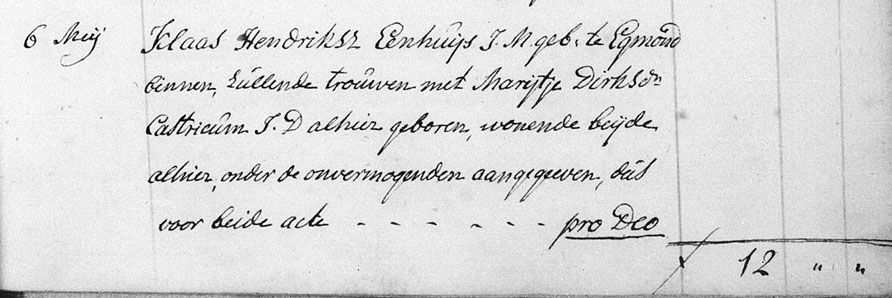 6 Meij Klaas Hendriksz Eenhuijs J. M. geb. te Egmond
binnen, zullende trouwen met Marijtje Dirksdr
Castricum J. D alhier geboren, wonende beijde
alhier, onder de onvermogenden aangegeven, dus
voor beide acte - - - - - - pro Deo
12 " "